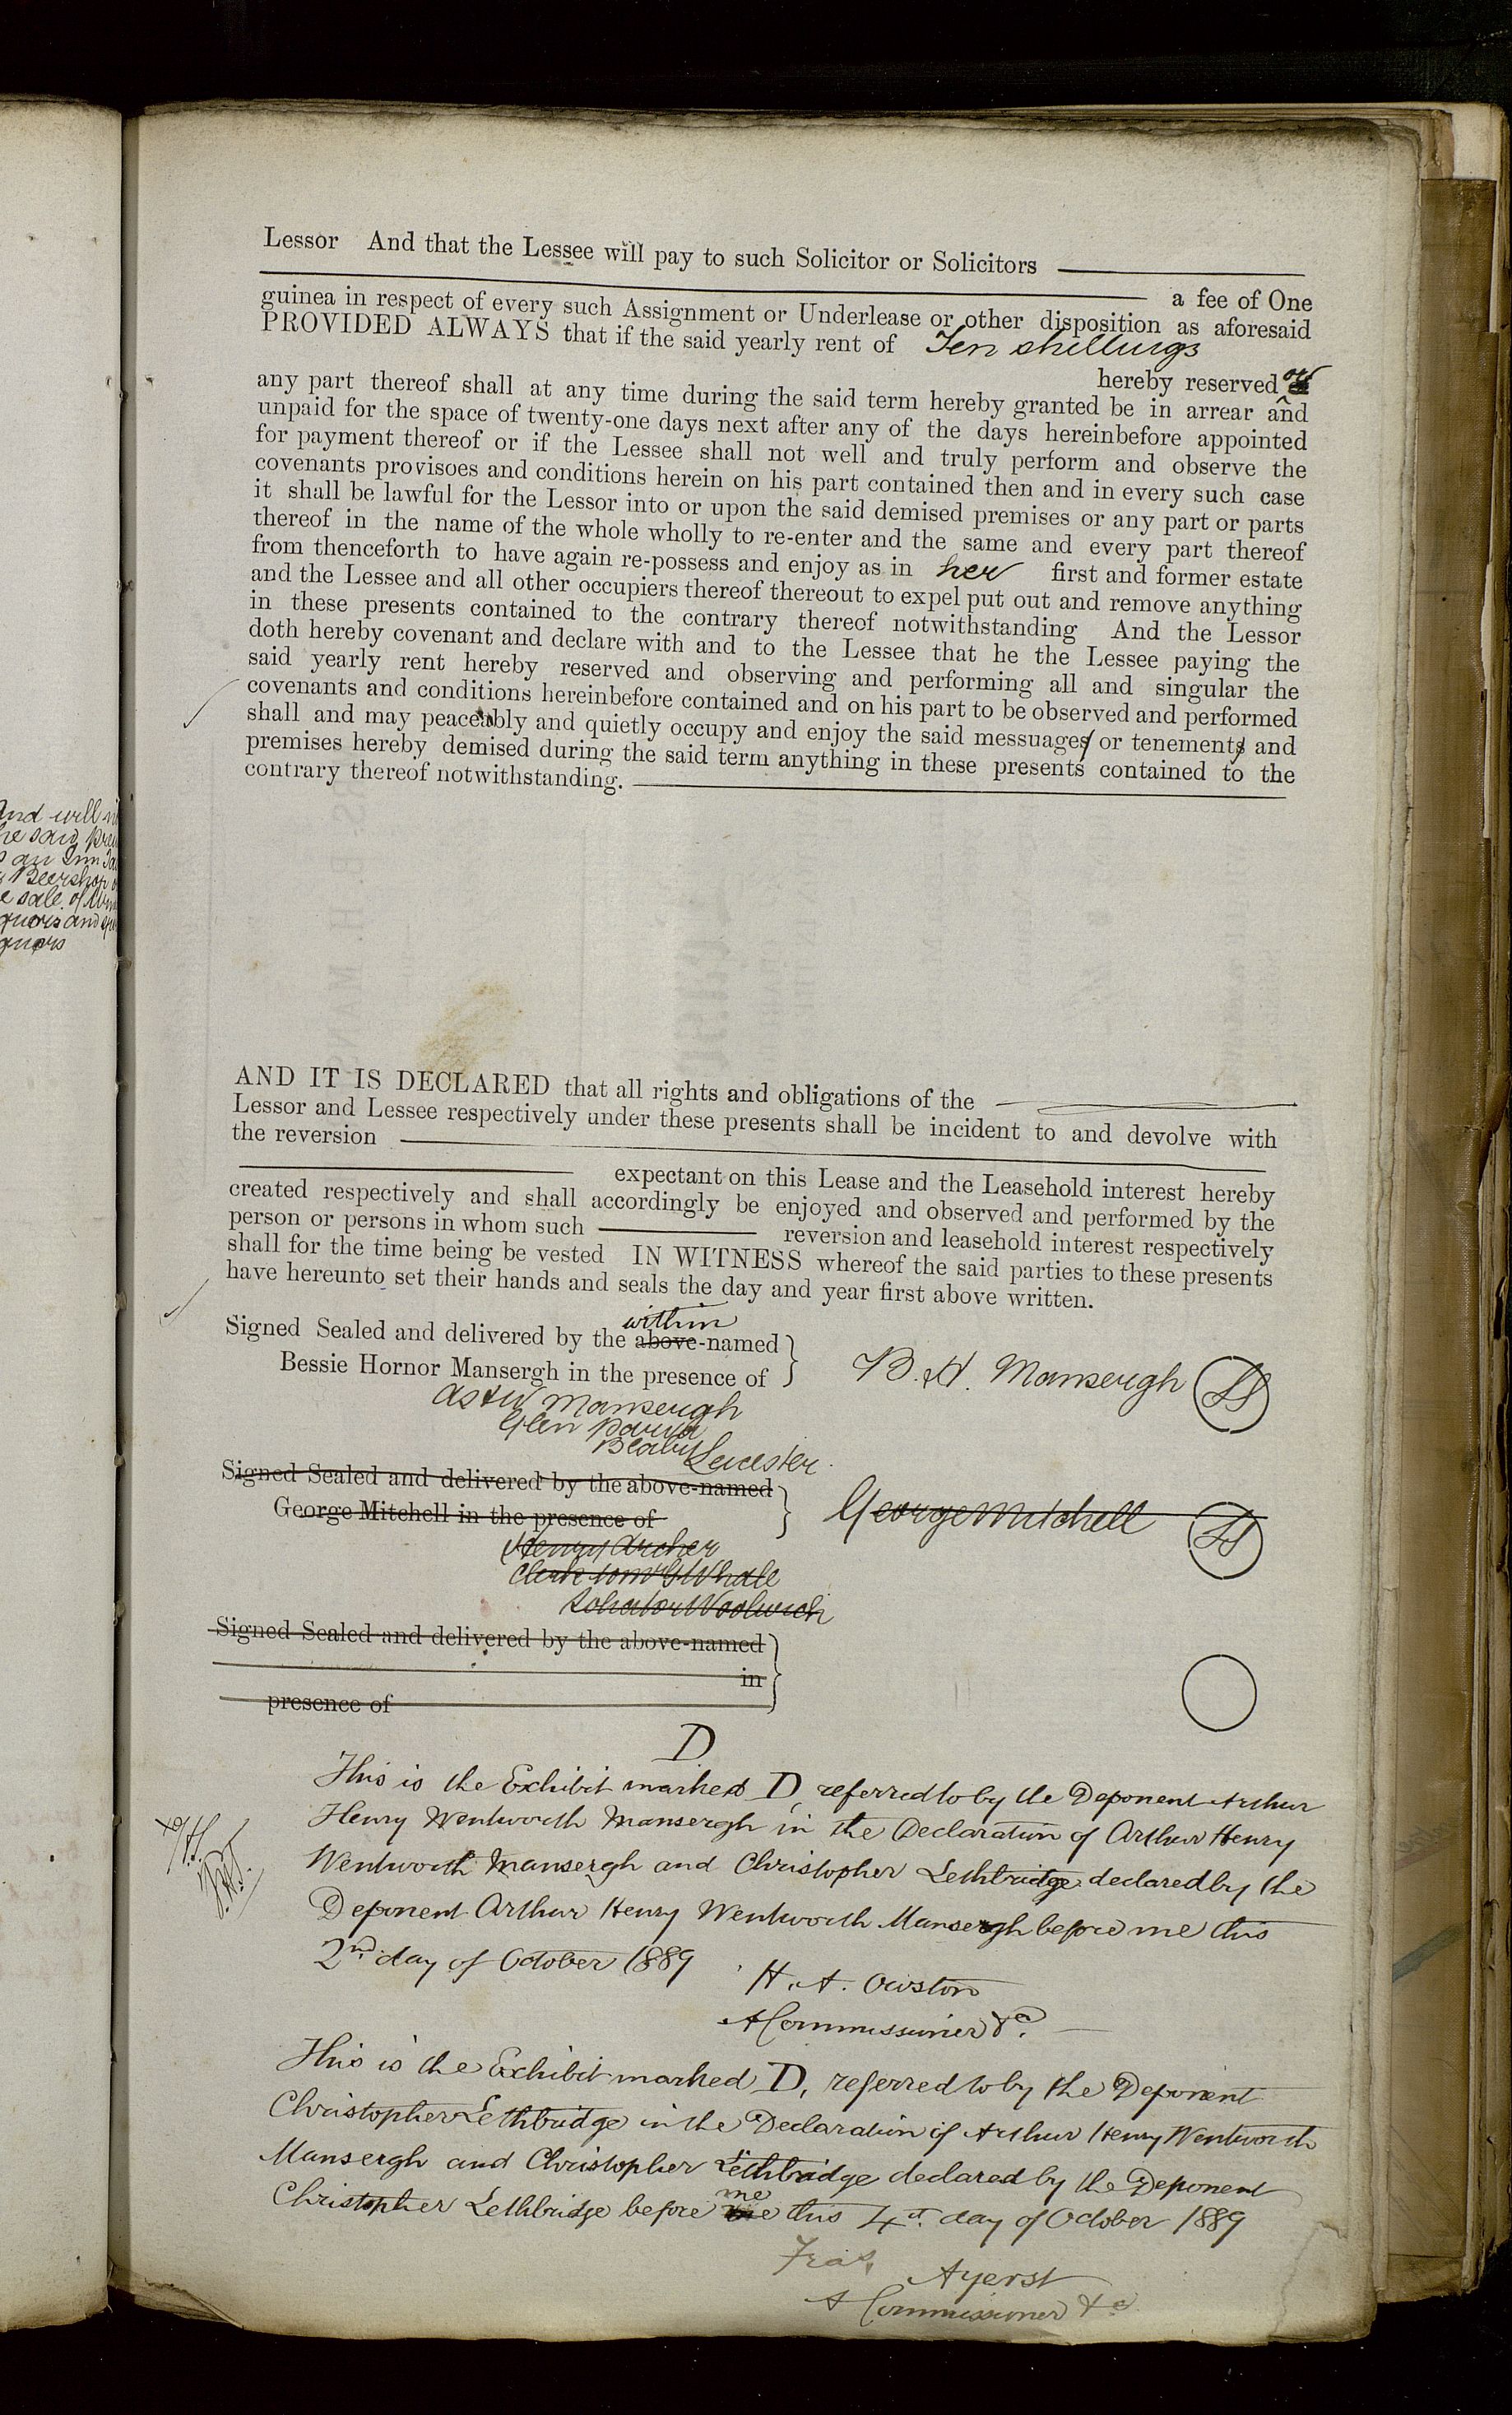 And will
he said
an Inn
Beershop
e sale of
quors and
quors
Lessor And that the Lessee will pay to such Solicitor or Solicitors
a fee of One
guinea in respect of every such Assignment or Underlease or other disposition as aforesaid
PROVIDED ALWAYS that if the said yearly rent of Ten shillings
hereby reserved or
any part thereof shall at any time during the said term hereby granted be in arrear and
unpaid for the space of twenty-one days next after any of the days hereinbefore appointed
for payment thereof or if the Lessee shall not well and truly perform and observe the
covenants provisoes and conditions herein on his part contained then and in every such case
it shall be lawful for the Lessor into or upon the said demised premises or any part or parts
thereof in the name of the whole wholly to re-enter and the same and every part thereof
from thenceforth to have again re-possess and enjoy as in her first and former estate
and the Lessee and all other occupiers thereof thereout to expel put out and remove anything
in these presents contained to the contrary thereof notwithstanding And the Lessor
doth hereby covenant and declare with and to the Lessee that he the Lessee paying the
said yearly rent hereby reserved and observing and performing all and singular the
covenants and conditions hereinbefore contained and on his part to be observed and performed
shall and may peaceably and quietly occupy and enjoy the said messuages or tenements and
premises hereby demised during the said term anything in these presents contained to the
contrary thereof notwithstanding.
AND IT IS DECLARED that all rights and obligations of the
Lessor and Lessee respectively under these presents shall be incident to and devolve with
the reversion
expectant on this Lease and the Leasehold interest hereby
created respectively and shall accordingly be enjoyed and observed and performed by the
person or persons in whom such reversion and leasehold interest respectively
shall for the time being be vested IN WITNESS whereof the said parties to these presents
have hereunto set their hands and seals the day and year first above written.
within
Signed Sealed and delivered by the above-named
Bessie Hornor Mansergh in the presence of
B. H. Mansergh LS
Mansergh
Glen Parva
Blaby Leicester.
Signed Sealed and delivered by the above-named
George Mitchell in the presence of
George Mitchell LS
Henry Archer
Clerk to Mr G Whale
Solicitor Woolwich
Signed Sealed and delivered by the above-named
in
presence of
D
This is the Exhibit marked D, referred to by the Deponent Arthur
Henry Wentworth Mansergh in the Declaration of Arthur Henry
Wentworth Mansergh and Christopher Lethbridge declared by the
Deponent Arthur Henry Wentworth Mansergh before me this
2nd day of October 1889
H. A. Owston
A Commissioner &c.
This is the Exhibit marked D, referred to by the Deponent
Christopher Lethbridge in the Declaration of Arthur Henry Wentworth
Mansergh and Christopher Lethbridge declared by the Deponent
me
Christopher Lethbridge before this 4th day of October 1889
Fras. Ayerst
A Commissioner &c